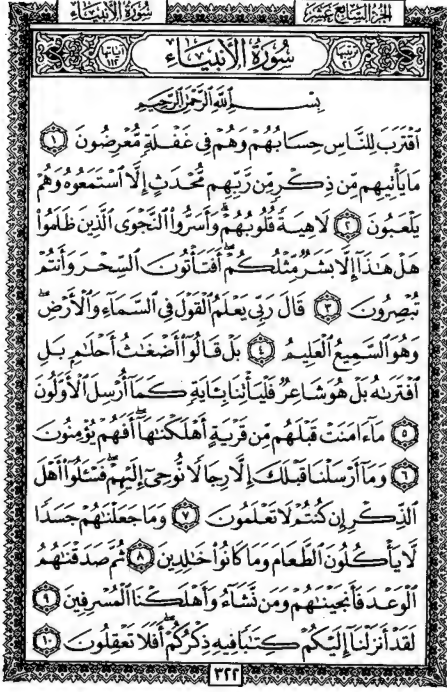 الجزء السابع عشر
سورة الأنبياء
ترتيبها ٢١
سُورَةُ الأَنبِيَاء
آياتها ١١٢
بِسْمِ ٱللَّهِ ٱلرَّحْمَٰنِ ٱلرَّحِيمِ
ٱقْتَرَبَ لِلنَّاسِ حِسَابُهُمْ وَهُمْ فِى غَفْلَةٍ مُّعْرِضُونَ ١
مَا يَأْتِيهِم مِّن ذِكْرٍ مِّن رَّبِّهِم مُّحْدَثٍ إِلَّا ٱسْتَمَعُوهُ وَهُمْ
يَلْعَبُونَ ٢ لَاهِيَةً قُلُوبُهُمْ وَأَسَرُّوا۟ ٱلنَّجْوَى ٱلَّذِينَ ظَلَمُوا۟
هَلْ هَٰذَآ إِلَّا بَشَرٌ مِّثْلُكُمْ أَفَتَأْتُونَ ٱلسِّحْرَ وَأَنتُمْ
تُبْصِرُونَ ٣ قَالَ رَبِّى يَعْلَمُ ٱلْقَوْلَ فِى ٱلسَّمَآءِ وَٱلْأَرْضِ
وَهُوَ ٱلسَّمِيعُ ٱلْعَلِيمُ ٤ بَلْ قَالُوٓا۟ أَضْغَٰثُ أَحْلَٰمٍ بَلِ
ٱفْتَرَىٰهُ بَلْ هُوَ شَاعِرٌ فَلْيَأْتِنَا بِـَٔايَةٍ كَمَآ أُرْسِلَ ٱلْأَوَّلُونَ
٥ مَآ ءَامَنَتْ قَبْلَهُم مِّن قَرْيَةٍ أَهْلَكْنَٰهَآ أَفَهُمْ يُؤْمِنُونَ
٦ وَمَآ أَرْسَلْنَا قَبْلَكَ إِلَّا رِجَالًا نُّوحِىٓ إِلَيْهِمْ فَسْـَٔلُوٓا۟ أَهْلَ
ٱلذِّكْرِ إِن كُنتُمْ لَا تَعْلَمُونَ ٧ وَمَا جَعَلْنَٰهُمْ جَسَدًا
لَّا يَأْكُلُونَ ٱلطَّعَامَ وَمَا كَانُوا۟ خَٰلِدِينَ ٨ ثُمَّ صَدَقْنَٰهُمُ
ٱلْوَعْدَ فَأَنجَيْنَٰهُمْ وَمَن نَّشَآءُ وَأَهْلَكْنَا ٱلْمُسْرِفِينَ ٩
لَقَدْ أَنزَلْنَآ إِلَيْكُمْ كِتَٰبًا فِيهِ ذِكْرُكُمْ أَفَلَا تَعْقِلُونَ ١٠
٣٢٢